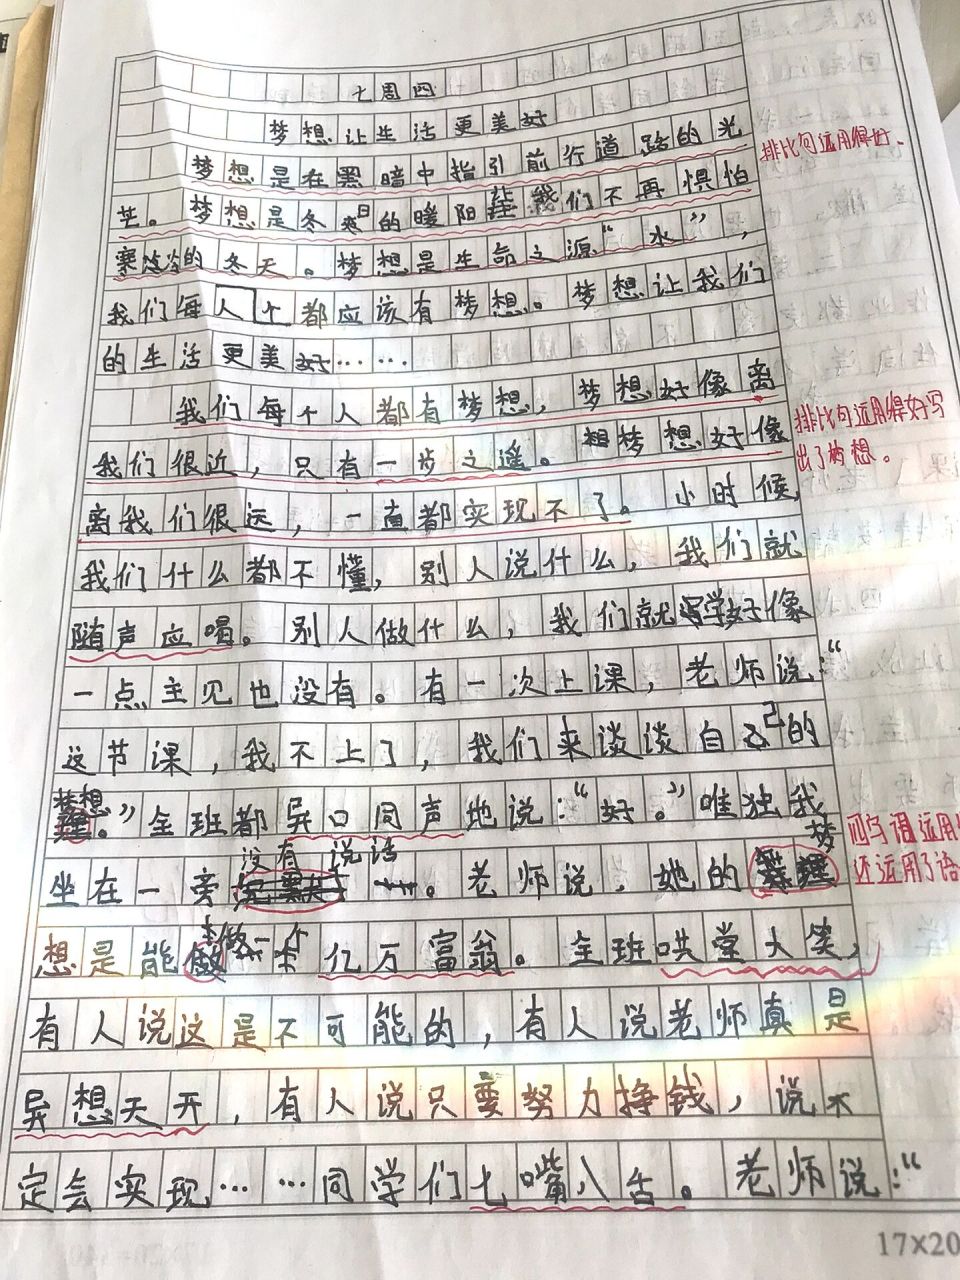 七周四
梦想让生活更美好
梦想是在黑暗中指引前行道路的光
排比句运用得好.
芒。梦想是冬日的暖阳让我们不再惧怕
寒冷的冬天。梦想是生命之源“水”，
我们每人个都应该有梦想。梦想让我们
的生活更美好……
我们每个人都有梦想，梦想好像离
排比句运用得好写
我们很近，只有一步之遥。梦想好像
出了梦想。
离我们很远，一直都实现不了。小时候
我们什么都不懂，别人说什么，我们就
随声应喝。别人做什么，我们就学好像
一点主见也没有。有一次上课，老师说：“
这节课，我不上了，我们来谈谈自己的
梦想。”全班都异口同声地说：“好。”唯独我
坐在一旁没有说话。老师说，她的梦
还运用了语
想是能做一个亿万富翁。全班哄堂大笑，
有人说这是不可能的，有人说老师真是
异想天开，有人说只要努力挣钱，说不
定会实现……同学们七嘴八舌。老师说：“
17×20